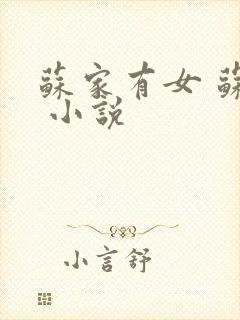 蘇家有女 蘇
小說
小言舒